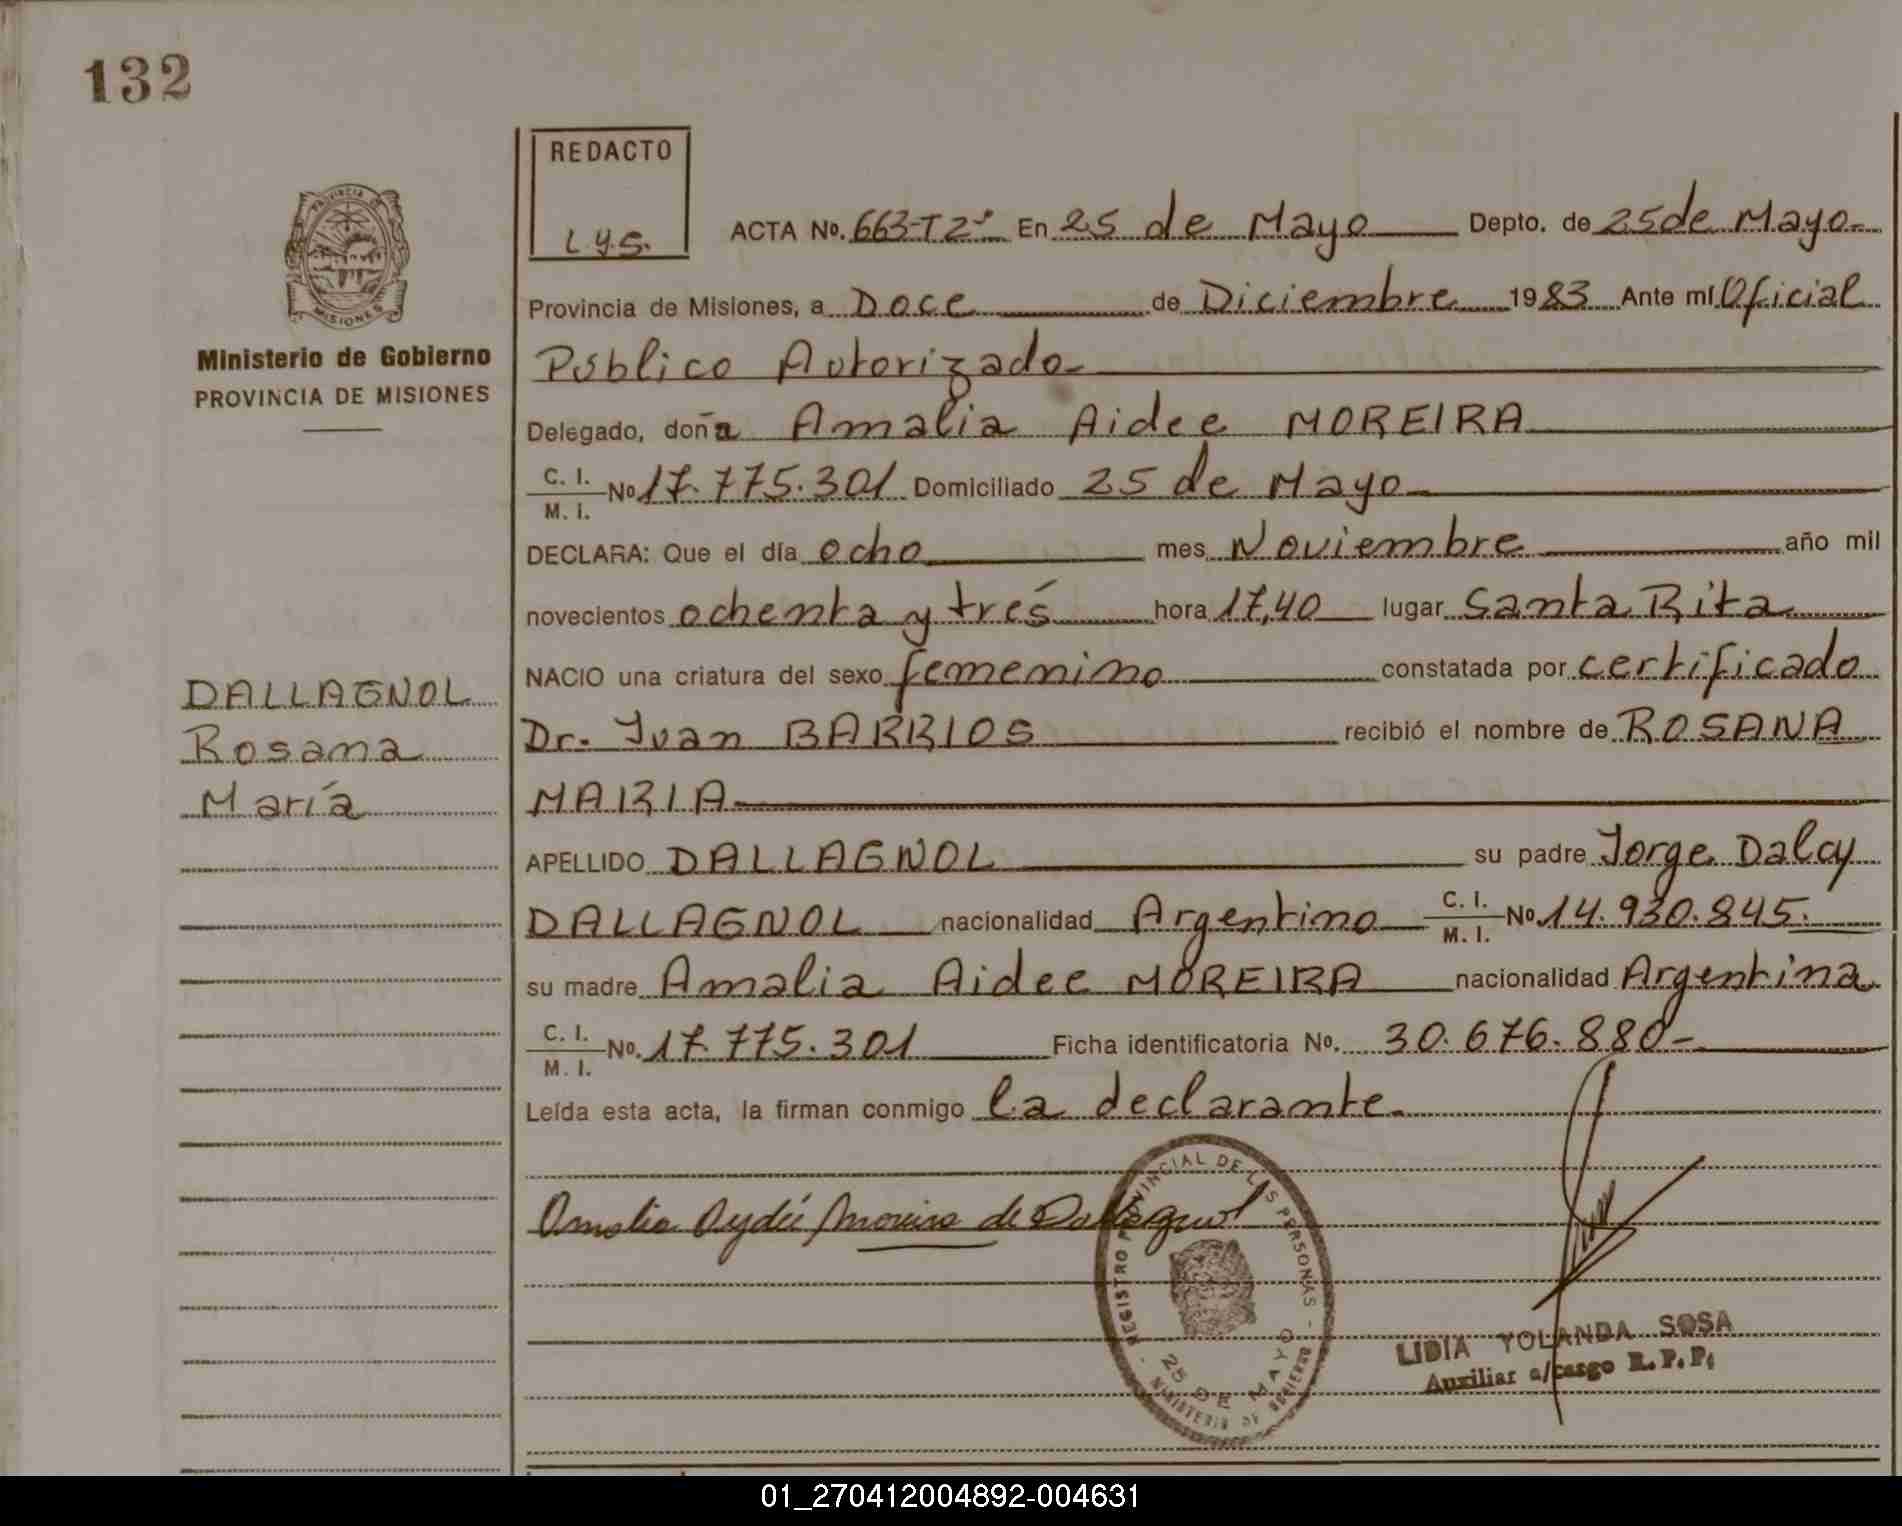 132
REDACTO
L.Y.S.
ACTA No. 663-T2º En 25 de Mayo Depto. de 25 de Mayo
Provincia de Misiones, a Doce de Diciembre 1983 Ante mí Oficial
Público Autorizado
Delegado, doña Amalia Aidee MOREIRA
C. I.
M. I. No 17.775.301 Domiciliado 25 de Mayo
DECLARA: Que el día ocho mes Noviembre año mil
novecientos ochenta y trés hora 17,40 lugar Santa Rita
NACIO una criatura del sexo femenino constatada por certificado
Dr. Juan BARRIOS recibió el nombre de ROSANA
MARIA
APELLIDO DALLAGNOL su padre Jorge Dalcy
DALLAGNOL nacionalidad Argentino C. I. M. I. No. 14.930.845.
su madre Amalia Aidee MOREIRA nacionalidad Argentina
C. I.
M. I. No. 17.775.301 Ficha identificatoria No. 30.676.880-
Leída esta acta, la firman conmigo la declarante.
Amalia Aydeé Moreira de Dallagnol
PROVINCIA DE
MISIONES
Ministerio de Gobierno
PROVINCIA DE MISIONES
DALLAGNOL
Rosana
María
REGISTRO PROVINCIAL DE LAS PERSONAS
25 DE MAYO
MINISTERIO DE GOBIERNO
LIDIA YOLANDA SOSA
Auxiliar a/cargo R.P.P.
01_270412004892-004631